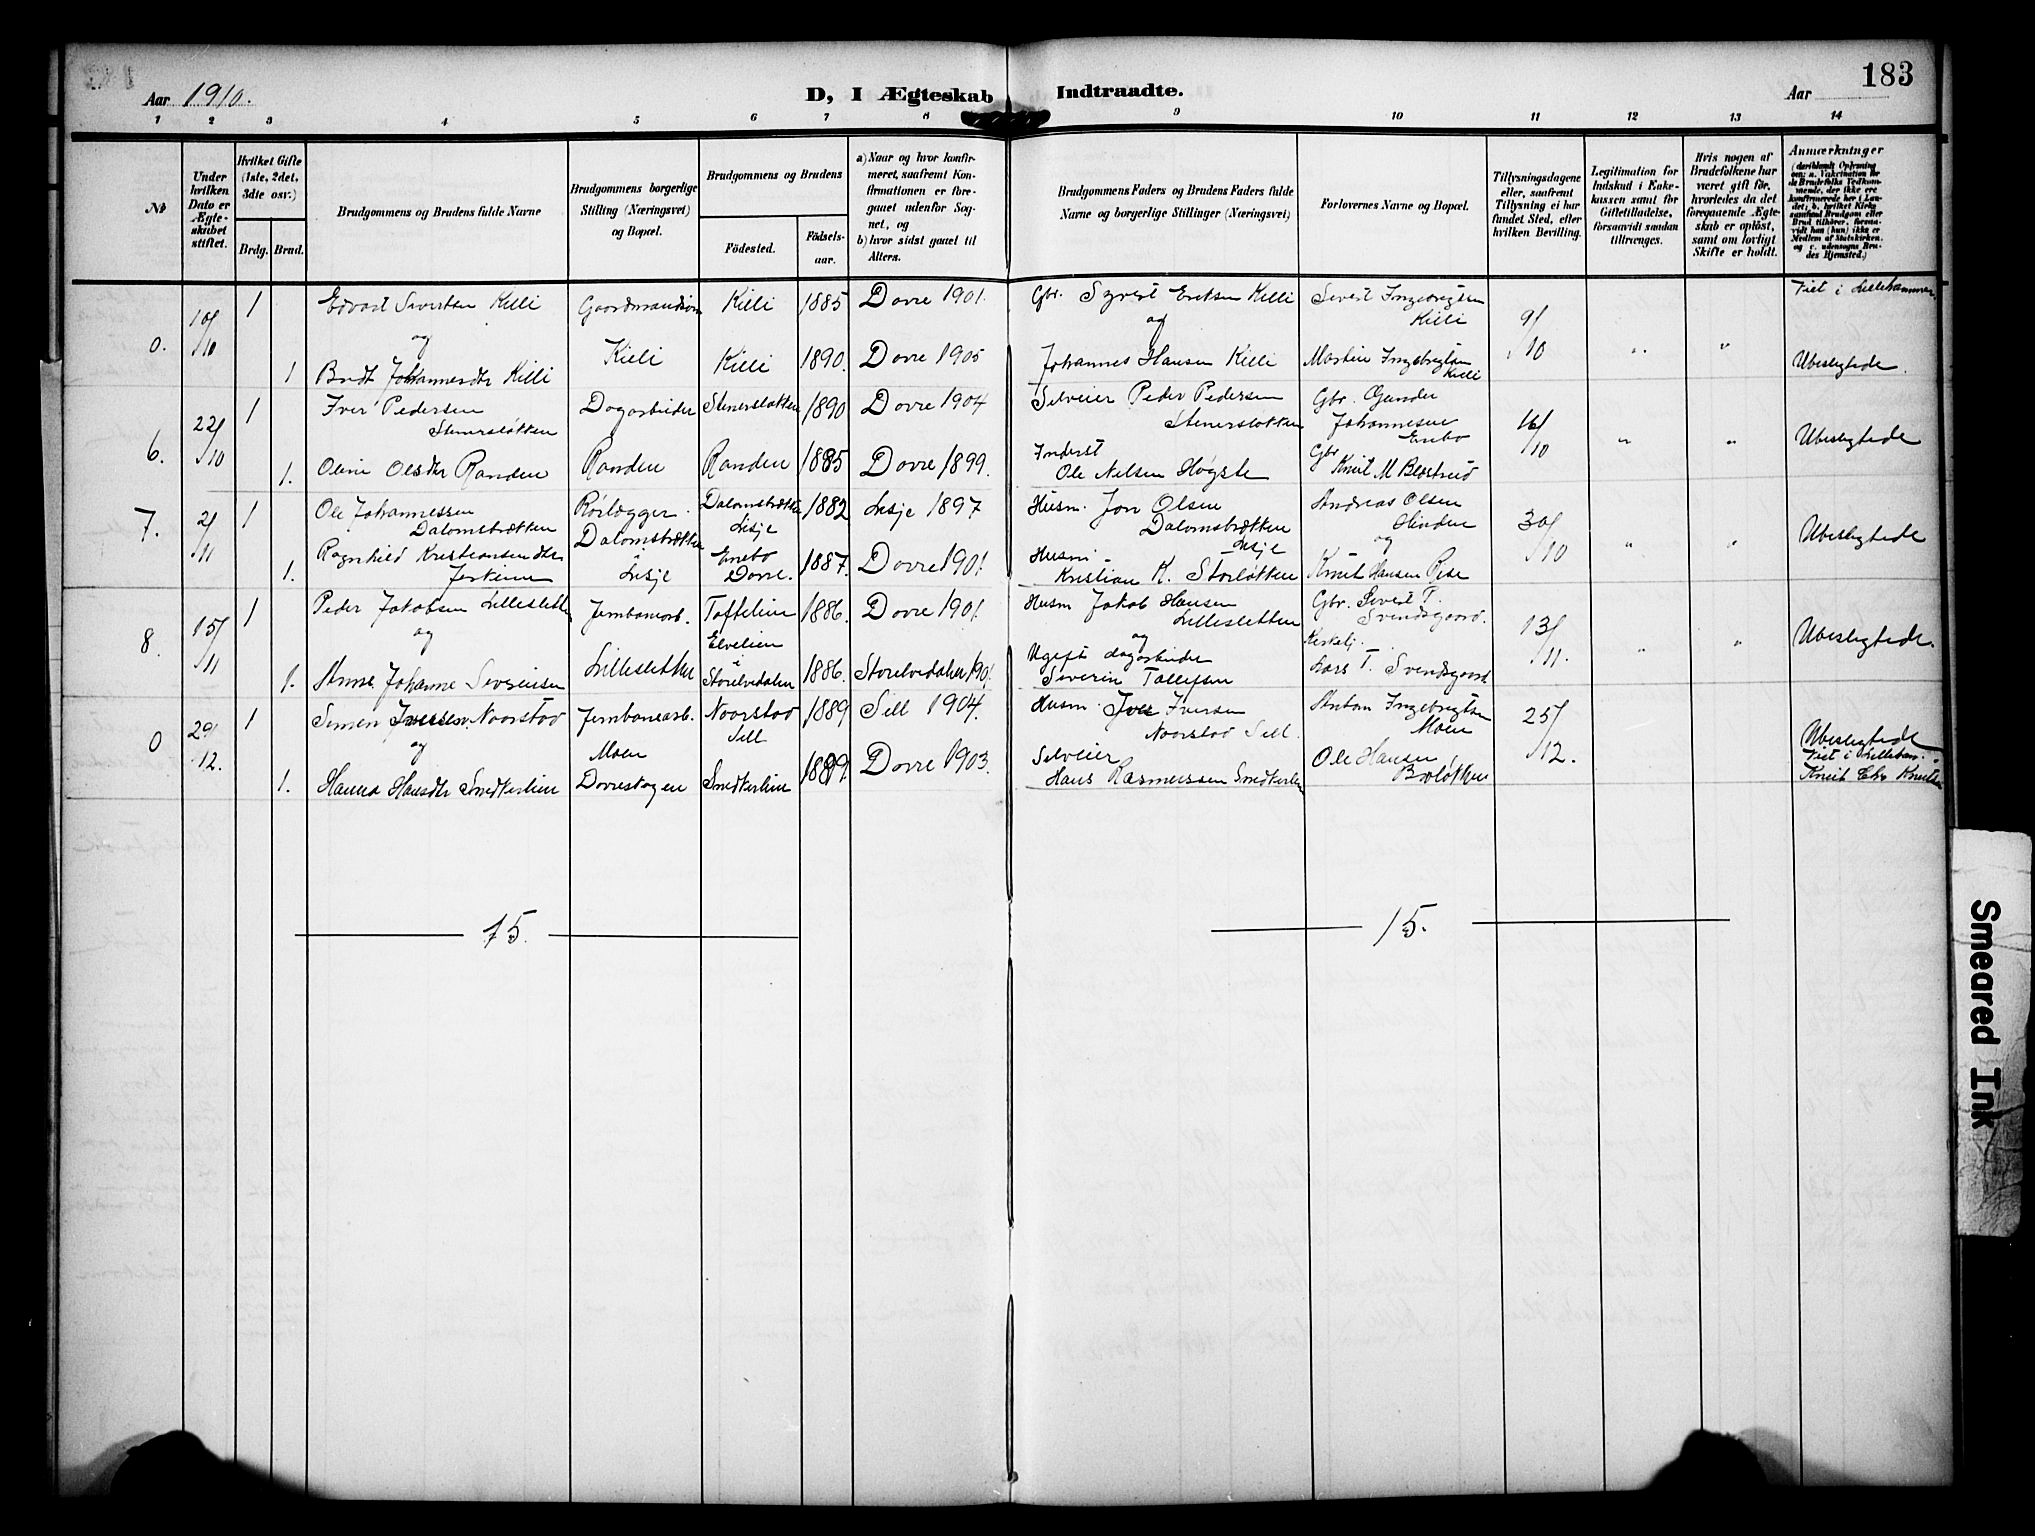 183
Aar 1910.
D, I Ægteskab Indtraadte.
Aar
1 2 3 4 5 6 7 8 9 10 11 12 13 14
№
Under hvilken Dato er Ægteskabet stiftet.
Hvilket Gifte (1ste, 2det, 3die osv.)
Brdg. Brud.
Brudgommens og Brudens fulde Navne
Brudgommens borgerlige Stilling (Næringsvei) og Bopæl.
Brudgommens og Brudens
Födested.
Födsels-aar.
a) Naar og hvor konfirmeret, saafremt Konfirmationen er foregaaet udenfor Sognet, og
b) hvor sidst gaaet til Alters.
Brudgommens Faders og Brudens Faders fulde Navne og borgerlige Stillinger (Næringsvei)
Forlovernes Navne og Bopæl.
Tillysningsdagene eller, saafremt Tillysning ei har fundet Sted, efter hvilken Bevilling.
Legitimation for Indskud i Enkekassen samt for Giftetilladelse, forsaavidt saadan tiltrænges.
Hvis nogen af Brudefolkene har været gift før, hvorledes da det foregaaende Ægteskab er opløst, samt om lovligt Skifte er holdt.
Anmærkninger
0. 10/10 1 Edvart Sivertsen Killi Gaardmandsøn Killi 1885 Dovre 1901. Gbr. Syvert Eriksen Killi Sivert Ingebrigtsen Killi 9/10 " " Viet i Lillehammer.
og Kieli og
1 Brit Johannesdtr Killi Killi 1890. Dovre 1905 Johannes Hansen Killi Martin Ingebrigtsen Killi Ubeslegtede.
6. 22/10 1 Iver Pedersen Stenersløkken Dagarbeider Stenersløkken 1890 Dovre 1904 Selveier Peder Pedersen Stenersløkken Gbr. Gunder Johannesen Enebo 16/10 " " Ubeslegtede
1. Oline Olsdtr Randen Randen Randen 1885 Dovre 1899. Inderst Ole Nelsen Høgste Gbr Knut M
7. 2/11 1 Ole Johannessen Dalomsbrækken Rørlægger. Dalomsbrækken Lesje 1882 Lesje 1897 Husm. Jon Olsen Dalomsbrækken Lesje Andreas Olsen Hinden 30/10 " " Ubeslegtede
og
1. Ragnhild Kristiansendtr Jerkinn Dalomsbrækken i Lesje Enebo Dovre. 1887. Dovre 1901. Husm. Kristian K. Storløkken Knut Hansen Rise
8. 15/11 1 Peder Jakobsen Lillesletten Jernbanearb. Toftelien 1886. Dovre 1901. Husm Jakob Hansen Lillesletten Gbr. Sivert T. Svendsgaard. 13/11. " " Ubeslegtede.
og og
1. Anne Johanne Severinsen Lillesletten Elvelien i Storelvedalen 1886. Storelvedalen 1901 Ugift dagarbeider Severin Tollefsen Kirketj. Lars T. Svendsgaard
0 29/12. 1 Simen Iversen Noorstad Jernbanearb. Noorstad Sell 1889 Sell 1904. Husm. Iver Iversen Noorstad Sell. Anton Ingebrigtsen Moen 25/12. Ubeslegtede
og Moen
1. Hanna Hansdtr Smedkerlien Dovreskogen Smedkerlien 1889. Dovre 1903. Selveier Hans Rasmussen Smedkerlien Ole Hansen Broløkken Viet i Lilleham. Knut Chr Knutsen
15. 15.
Smeared Ink